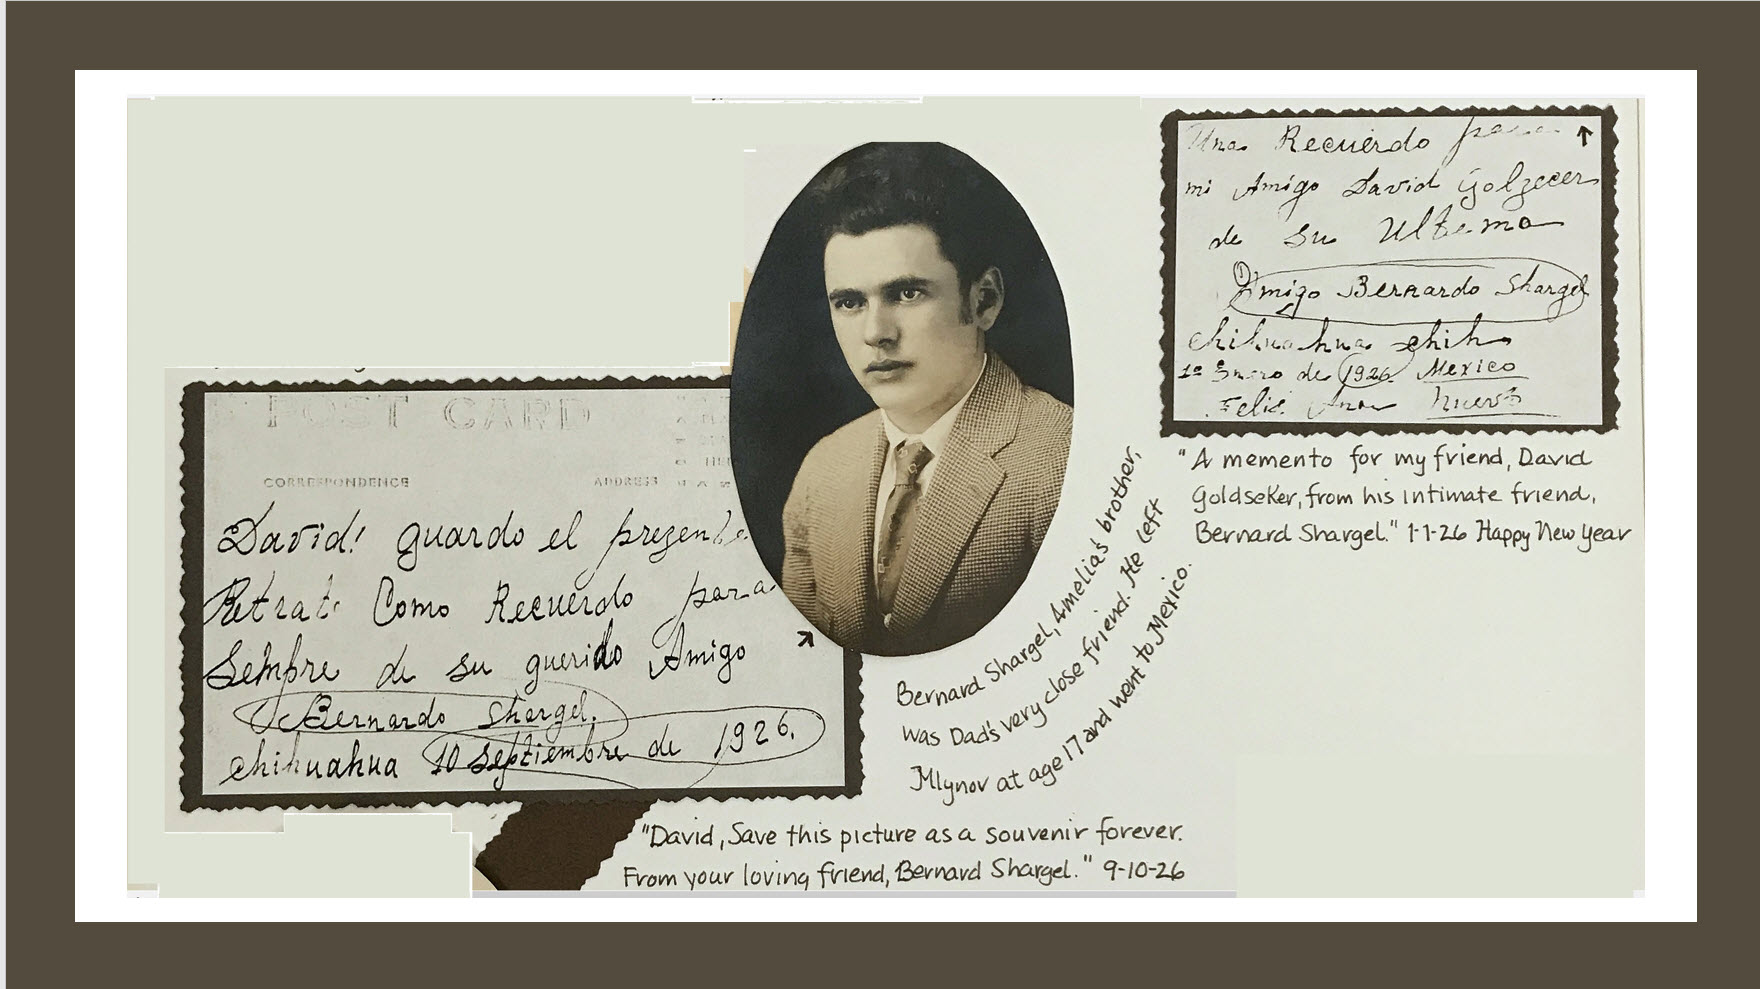 POST CARD
CORRESPONDENCE
ADDRESS
David! guardo el presente
Retrato Como Recuerdo para
Sempre de su querido Amigo
Bernardo Shargel.
Chihuahua 10 Septiembre de 1926.
Una Recuerdo para
mi Amigo David Golzecer
de su Ultema
Amigo Bernardo Shargel
Chihuahua chih
1º Enero de 1926 Mexico
Felis Nuevo
"A memento for my friend, David
Goldseker, from his intimate friend,
Bernard Shargel." 1-1-26 Happy New Year
Bernard Shargel, Amelia's brother,
was Dad's very close friend. He left
Mlynov at age 17 and went to Mexico.
"David, Save this picture as a souvenir forever.
From your loving friend, Bernard Shargel." 9-10-26